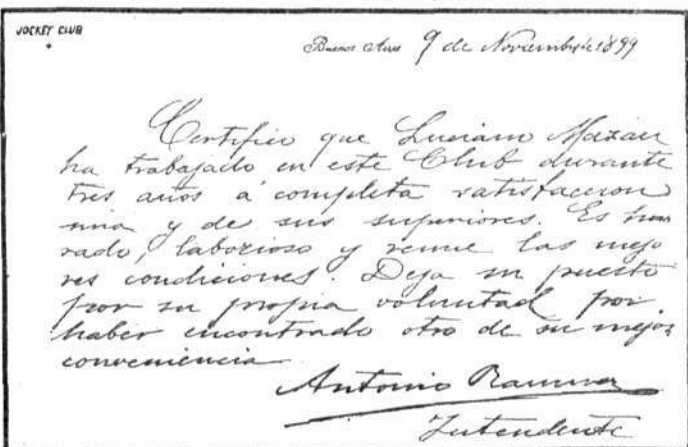 JOCKEY CLUB
Buenos Aires 9 de Noviembre de 1899
Certifico que Luciano Mazán
ha trabajado en este Club durante
tres años á completa satisfaccion
mia y de sus superiores. Es hon
rado, laborioso y reune las mejo
res condiciones. Deja su puesto
por su propia voluntad por
haber encontrado otro de su mejor
conveniencia.
Antonio
Intendente